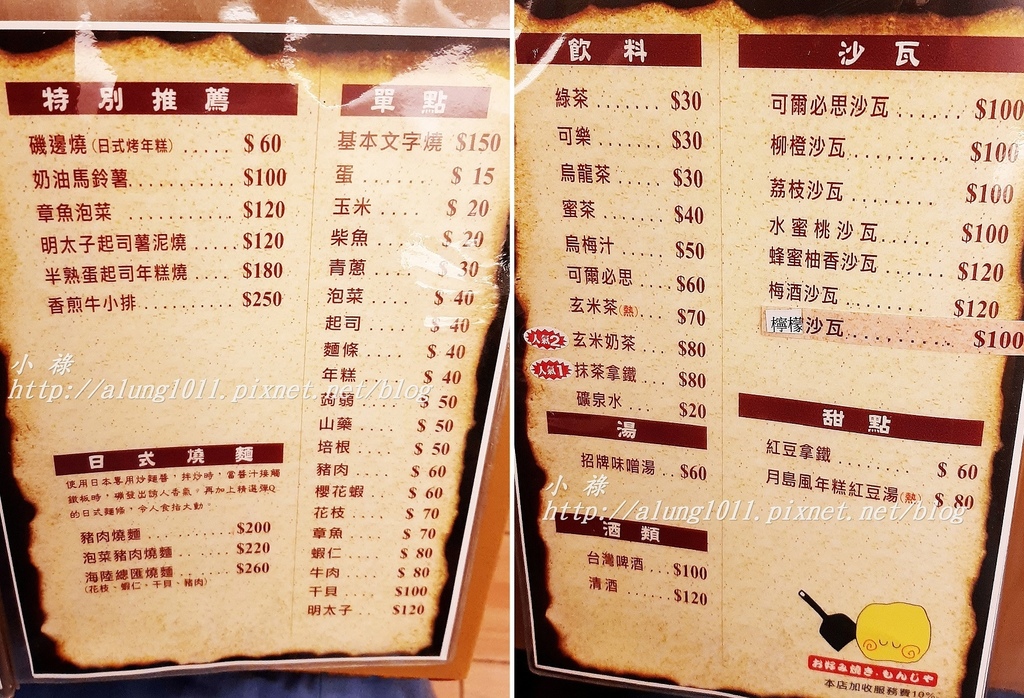 特別推薦
磯邊燒(日式烤年糕)..... $ 60
奶油馬鈴薯........... $100
章魚泡菜 ............ $120
明太子起司薯泥燒 ...... $120
半熟蛋起司年糕燒 ...... $180
香煎牛小排........... $250
日式燒麵
使用日本專用炒麵醬,拌炒時,當醬汁接觸
鐵板時,
出誘人香氣。再加上精選彈Q
的日式麵條,令人食指大動.
豬肉燒麵 ............ $200
泡菜豬肉燒麵 ........ $220
海陸總匯燒麵 ........ $260
(花枝、蝦仁、干貝、豬肉)
單點
基本文字燒 $150
蛋 ........ $ 15
玉米 ..... $ 20
柴魚 ..... $ 20
青蔥 ..... $ 30
泡菜 ..... $ 40
起司 ..... $ 40
麵條 ..... $ 40
年糕 ..... $ 40
蒟蒻 ..... $ 50
山藥 ..... $ 50
培根 ..... $ 50
豬肉 ..... $ 60
櫻花蝦 .... $ 60
花枝 ..... $ 70
章魚 ..... $ 70
蝦仁 ..... $ 80
牛肉 ..... $ 80
干貝 ..... $100
明太子 ... $120
小 祿
http://alung1011.pixnet.net/blog
飲料
綠茶 ........ $30
可樂 ........ $30
烏龍茶 ...... $30
蜜茶 ........ $40
烏梅汁 ...... $50
可爾必思 .... $60
玄米茶(熱) .... $70
人氣2 玄米奶茶 .... $80
人氣1 抹茶拿鐵 .... $80
礦泉水 .... $20
湯
招牌味噌湯 .. $60
酒類
台灣啤酒 .... $100
清酒 ........ $120
沙瓦
可爾必思沙瓦 ........ $100
柳橙沙瓦 .......... $100
荔枝沙瓦 .......... $100
水蜜桃沙瓦 ........ $100
蜂蜜柚香沙瓦 ...... $120
梅酒沙瓦 .......... $120
檸檬沙瓦 .......... $100
甜點
紅豆拿鐵 .......... $ 60
月島風年糕紅豆湯(熱) .. $ 80
小 祿
http://alung1011.pixnet.net/blog
お好み焼き・もんじゃ
本店加收服務費10%